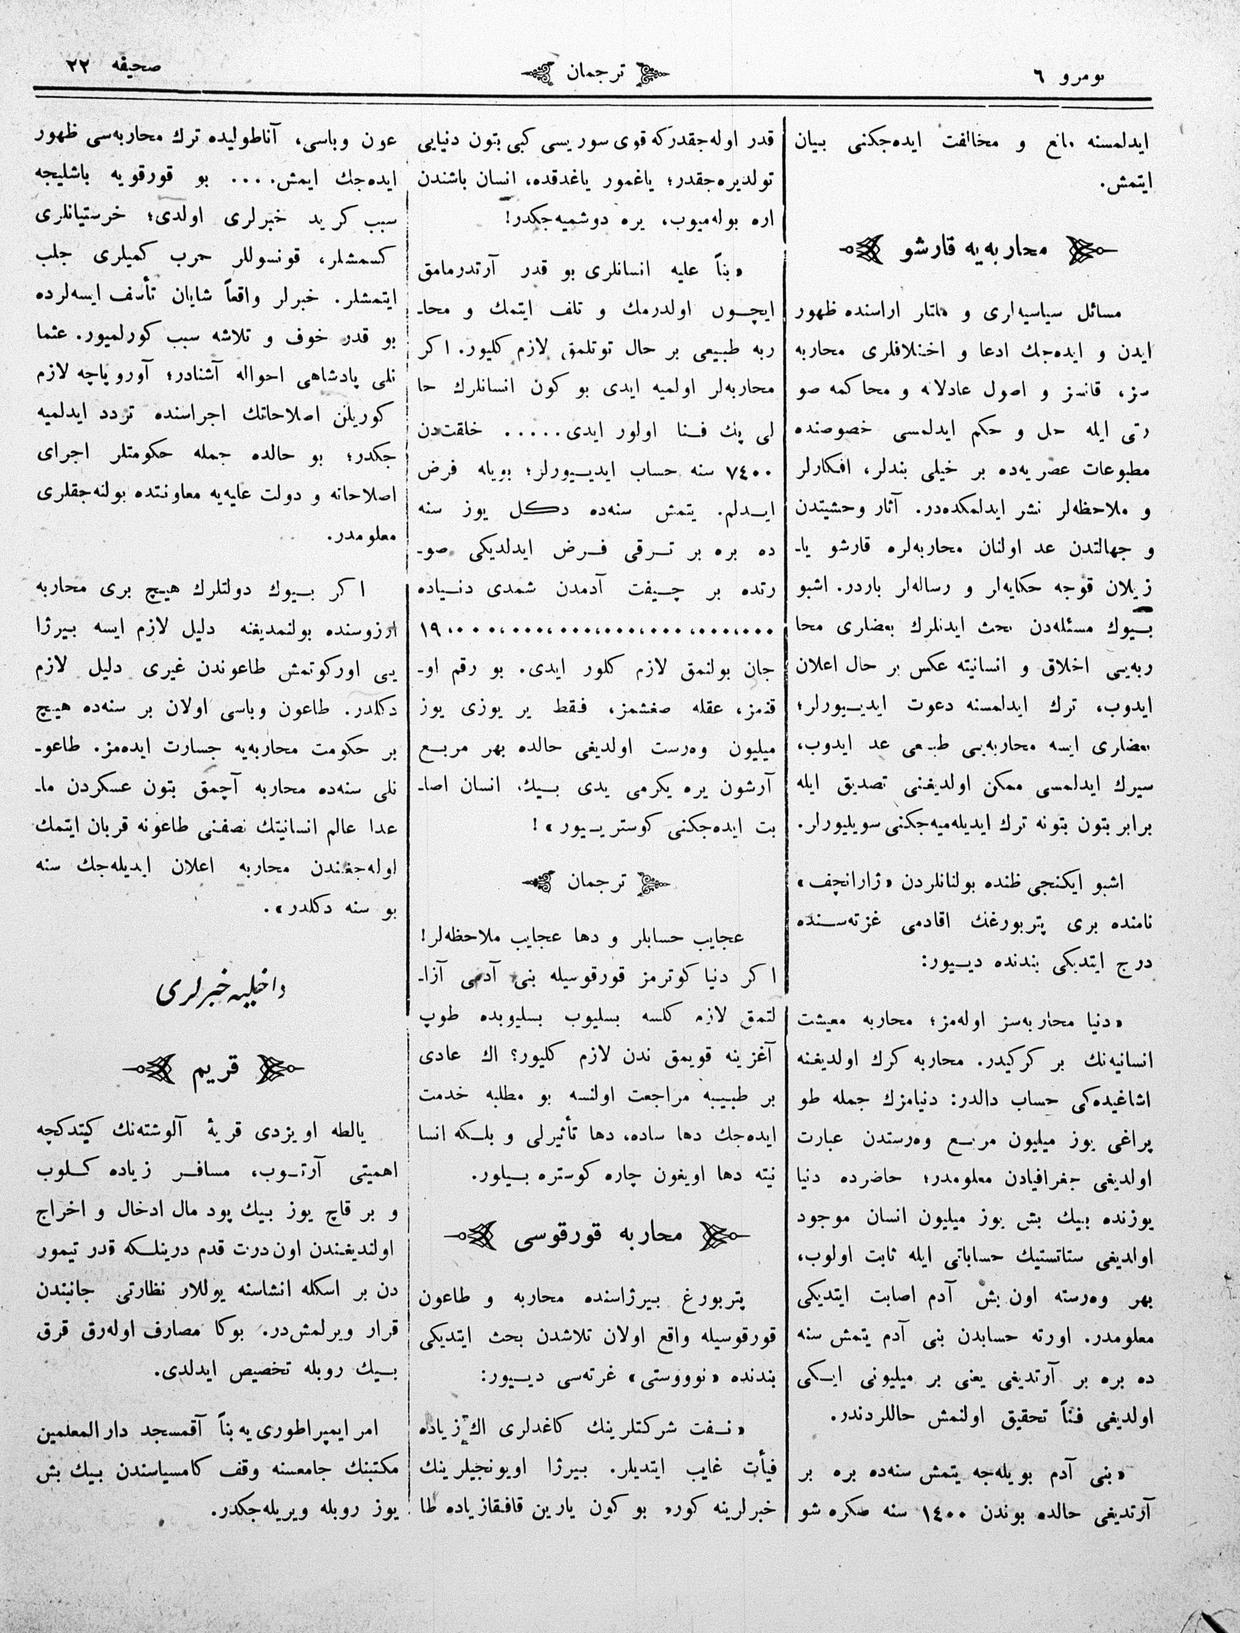 نومرو ٦
ترجمان
صحيفه ٢٢
ايدلمسنه مانع و مخالفت ايده‌جكنى بيان
ايتمش.
محاربه‌يه قارشو
مسائل سياسيه‌لرى و ملتلر اراسنده ظهور
ايدن و ايده‌جك ادعا و اختلافلرى محاربه
سز، قانسز و اصول عادلانه و محاكمه صو
رتى ايله حل و حكم ايدلمسى خصوصنده
مطبوعات عصريه‌ده بر خيلى بندلر، افكارلر
و ملاحظه‌لر نشر ايدلمكده‌در. آثار وحشيتدن
و جهالتدن عد اولنان محاربه‌لره قارشو يا-
زيلان قوجه حكايه‌لر و رساله‌لر باردر. اشبو
بيوك مسئله‌دن بحث ايدنلرك بعضارى محا
ربه‌يى اخلاق و انسانيته عكس بر حال اعلان
ايدوب، ترك ايدلمسنه دعوت ايديورلر؛
بعضارى ايسه محاربه‌يى طبيعى عد ايدوب،
سيرك ايدلمسى ممكن اولديغنى تصديق ايله
برابر بتون بتونه ترك ايديله‌ميه‌جكنى سويليورلر.
اشبو ايكنجى ظنده بولنانلردن «ژارانچف»
نامنده برى پتربورغك اقادمى غزته‌سنده
درج ايتديكى بندنده ديیور:
«دنيا محاربه‌سز اوله‌مز؛ محاربه معيشت
انسانيه‌نك بر كركيدر. محاربه كرك اولديغنه
اشاغيده‌كى حساب دالدر: دنيامزك جمله طو
پراغى يوز ميليون مربع وه‌رستدن عبارت
اولديغى جغرافيادن معلومدر؛ حاضرده دنيا
يوزنده بيك بش يوز ميليون انسان موجود
اولديغى ستاتستيك حساباتى ايله ثابت اولوب،
بهر وه‌رسته اون بش آدم اصابت ايتديكى
معلومدر. اورته حسابدن بنى آدم يتمش سنه
ده بره بر آرتديغى يعنى بر ميليونى ايكى
اولديغى فناً تحقيق اولنمش حاللردندر.
«بنى آدم بويله‌جه يتمش سنه‌ده بره بر
آرتديغى حالده بوندن ١٤٠٠ سنه صكره شو
قدر اوله‌جقدركه قوى سوريسى كبى بتون دنيايى
تولديره‌جقدر؛ ياغمور ياغدقده، انسان باشندن
اره بوله‌ميوب، يره دوشميه‌جكدر!
«بناً عليه انسانلرى بو قدر آرتدرمامق
ايچون اولدرمك و تلف ايتمك و محا-
ربه طبيعى بر حال توتلمق لازم كليور. اكر
محاربه‌لر اولميه ايدى بو كون انسانلرك حا
لى پك فنا اولور ايدى..... خلقت‌دن
٧٤٠٠ سنه حساب ايديیورلر؛ بويله فرض
ايدلم. يتمش سنه‌ده دكل يوز سنه
ده بره بر ترقى فرض ايدلديكى صو-
رتده بر چيفت آدمدن شمدى دنياده
جان بولنمق لازم كلور ايدى. بو رقم او-
قنمز، عقله صغشمز، فقط ير يوزى يوز
ميليون وه‌رست اولديغى حالده بهر مربع
آرشون يره يكرمى يدى بيك انسان اصا-
بت ايده‌جكنى كوستريیور»!
ترجمان
عجايب حسابلر و دها عجايب ملاحظه‌لر!
اكر دنيا كوترمز قورقوسيله بنى آدمى آزا-
لتمق لازم كلسه بسليوب بسليوبده طوپ
آغزينه قويمق ندن لازم كليور؟ اك عادى
بر طبيبه مراجعت اولنسه بو مطلبه خدمت
ايده‌جك دها ساده، دها تأثيرلى و بلكه انسا
نيته دها اويغون چاره كوستره بيلور.
محاربه قورقوسى
پتربورغ بيرژاسنده محاربه و طاعون
قورقوسيله واقع اولان تلاشدن بحث ايتديكى
بندنده «نوووستى» غزته‌سى ديیور:
«نفت شركتلرينك كاغدلرى اك زياده
فيأت غايب ايتديلر. بيرژا اويونجيلرينك
خبرلرينه كوره بو كون يارين قافقازياده طا
عون وباسى، آناطوليده ترك محاربه‌سى ظهور
ايده‌جك ايمش.... بو قورقويه باشليجه
سبب كريد خبرلرى اولدى؛ خرستيانلرى
كسمشلر، قونسوللر حرب كميلرى جلب
ايتمشلر. خبرلر واقعاً شايان تأسف ايسه‌لرده
بو قدر خوف و تلاشه سبب كورلميور. عثما
نلى پادشاهى احواله آشنادر؛ آوروپاچه لازم
كوريلن اصلاحاتك اجراسنده تردد ايدلميه
جكدر؛ بو حالده جمله حكومتلر اجراى
اصلاحاته و دولت عليه‌يه معاونتده بولنه‌جقلرى
معلومدر.
اكر بيوك دولتلرك هيچ برى محاربه
ارزوسنده بولنمديغنه دليل لازم ايسه بيرژا
يى اوركوتمش طاعوندن غيرى دليل لازم
دكلدر. طاعون وباسى اولان بر سنه‌ده هيچ
بر حكومت محاربه‌يه جسارت ايده‌مز. طاعو-
نلى سنه‌ده محاربه آچمق بتون عسكردن ما-
عدا عالم انسانيتك نصفنى طاعونه قربان ايتمك
اوله‌جغندن محاربه اعلان ايديله‌جك سنه
بو سنه دكلدر».
داخليه خبرلرى
قريم
يالطه اويزدى قريهٔ آلوشته‌نك كيتدكچه
اهميتى آرتوب، مسافر زياده كلوب
و بر قاچ يوز بيك پود مال ادخال و اخراج
اولنديغندن اون درت قدم درينلكه قدر تيمور
دن بر اسكله انشاسنه يوللار نظارتى جانبندن
قرار ويرلمش‌در. بوكا مصارف اوله‌رق قرق
بيك روبله تخصيص ايدلدى.
امر ايمپراطورى‌يه بناً آقمسجد دارالمعلمين
مكتبنك جامعسنه وقف كامسياسندن بيك بش
يوز روبله ويريله‌جكدر.